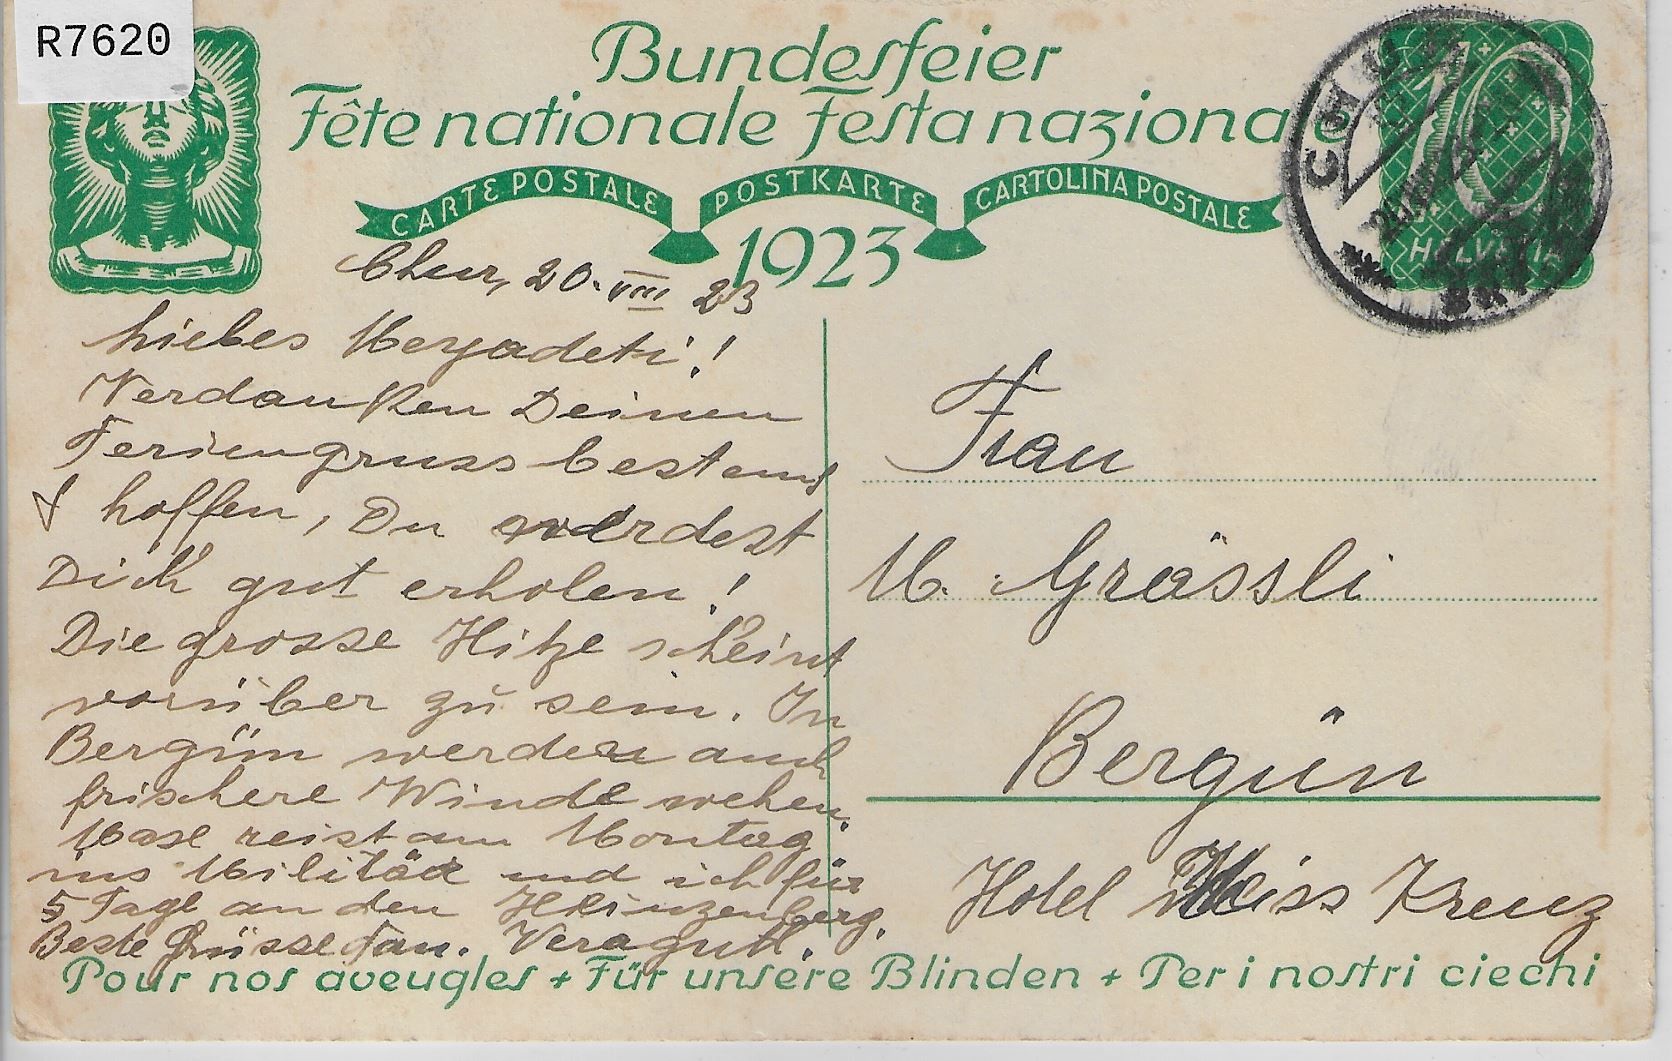 R7620
Bundesfeier
Fête nationale Festa nazionale
CARTE POSTALE POSTKARTE CARTOLINA POSTALE
1923
CHUR
HELVETIA
Chur, 20. VIII 23
Liebes Meyadeti!
Verdanken Deinen
Feriengruss bestens
& hoffen, Du werdest
Dich gut erholen!
Die grosse Hitze scheint
vorüber zu sein. In
Bergün werden auch
frischere Winde wehen.
Max reist am Montag
ins Militär und ich für
5 Tage an den Heinzenberg.
Beste Grüsse Fam. Veraguth.
Frau
M. Grässli
Bergün
Hotel Weiss Kreuz
Pour nos aveugles + Für unsere Blinden + Per i nostri ciechi